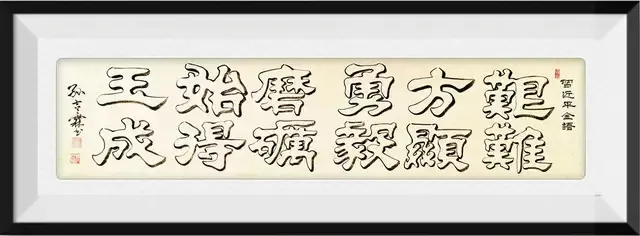 習近平金語
艱難
方顯
勇毅
磨礪
始得
玉成